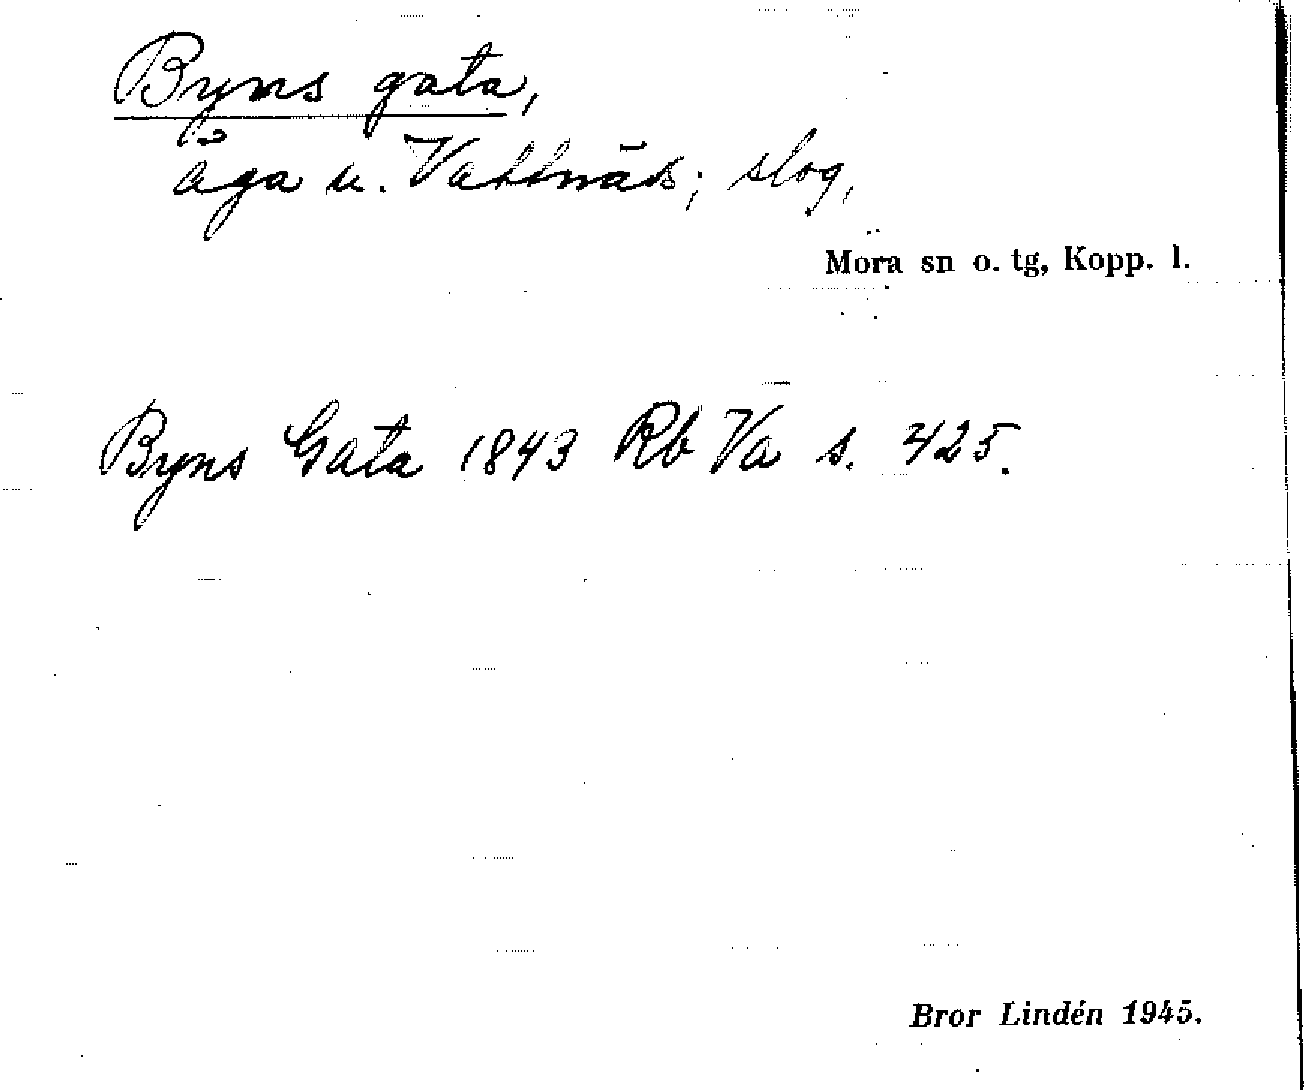 Byns gata,
äga u. Vattnäs; slog,
Mora sn o. tg, Kopp. l.
Byns Gata 1843 Rb Va s. 425.
Bror Lindén 1945.